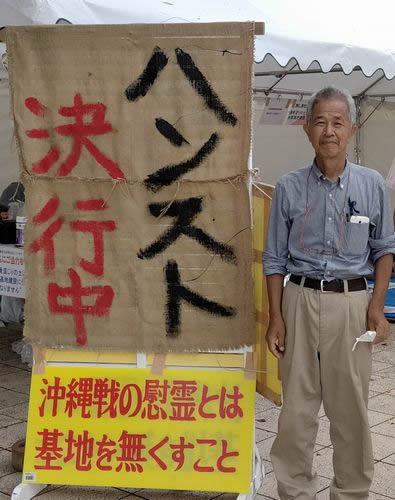 ハンスト
決行中
沖縄戦の慰霊とは
基地を無くすこと